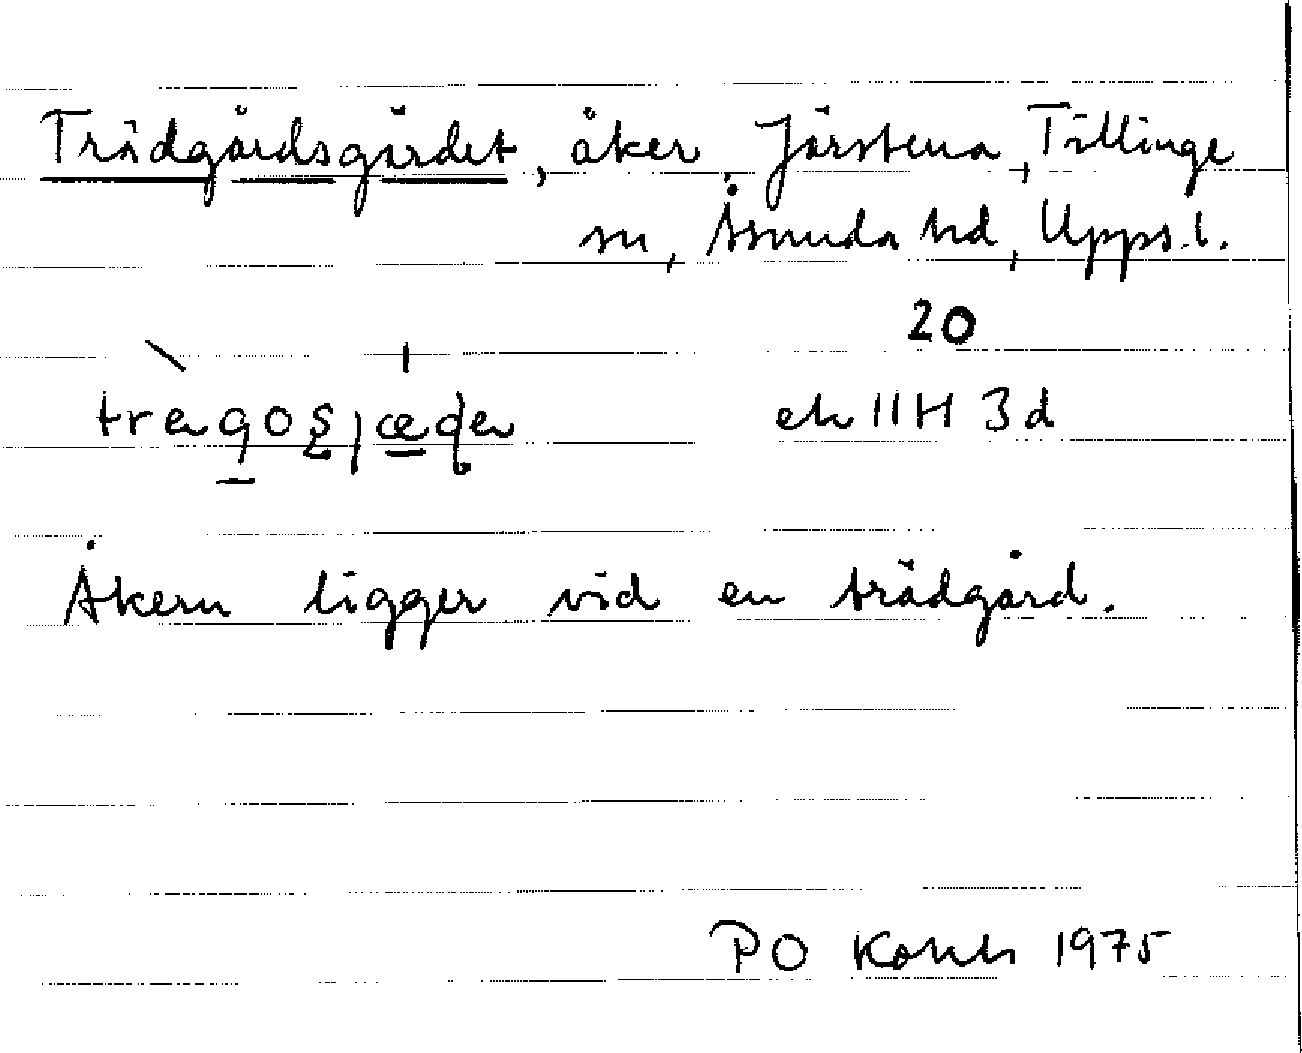 Trädgårdsgärdet, åker Järstena, Tillinge
sn, Åsunda hd, Upps.l.
20
ek 11H 3d
Åkern ligger vid en trädgård.
PO 1975